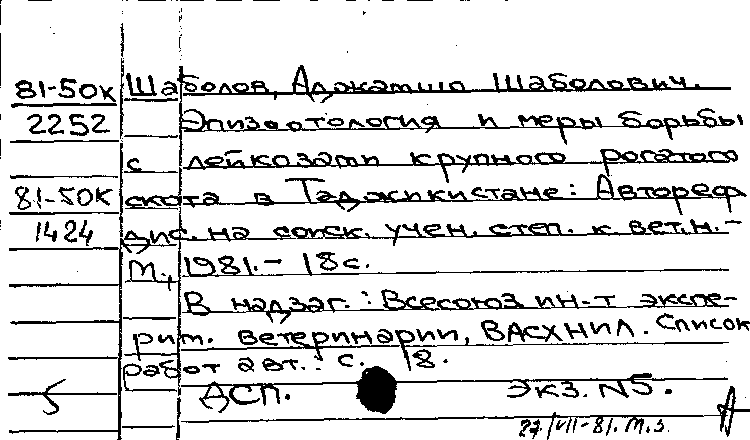 81-50К Шаболов, Аджамшо Шаболович.
2252 Эпизоотология и меры борьбы
с лейкозами крупного рогатого
81-50К скота в Таджикистане: Автореф
1424 дис. на соиск. учен. степ. к. вет. н. -
М., 1981. - 18 с.
В надзаг.: Всесоюз ин-т экспе-
рим. ветеринарии, ВАСХНИЛ. Список
работ авт.: с. 18.
5 АСП. экз. N5.
27/VII-81. М.З. А